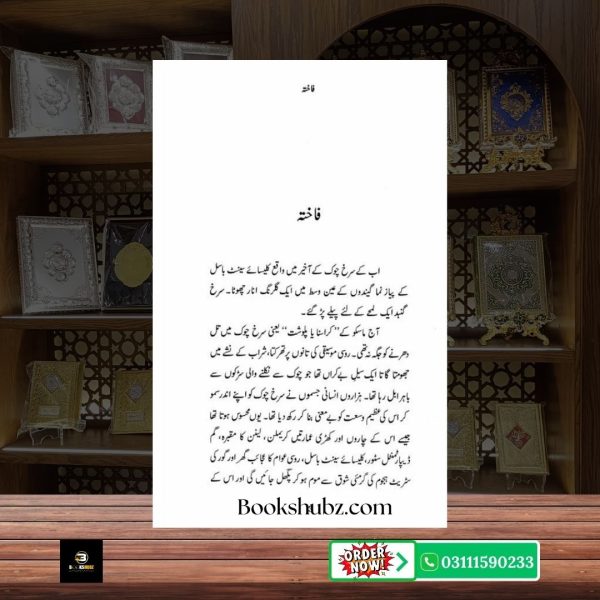 فاختہ
فاختہ
اب کے سرخ چوک کے آخیر میں واقع کلیسائے سینٹ باسل
کے پیاز نما گنبدوں کے عین وسط میں ایک گلرنگ انار چھوٹا۔ سرخ
گنبد ایک لمحے کے لئے پیلے پڑ گئے۔
آج ماسکو کے "کراسنا یا پلوشت" یعنی سرخ چوک میں تل
دھرنے کو جگہ نہ تھی۔ روسی موسیقی کی تانوں پر تھرکتا، شراب کے نشے میں
جھومتا گاتا ایک سیل بے کراں تھا جو چوک سے نکلنے والی سڑکوں سے
باہر ابل رہا تھا۔ ہزاروں انسانی جسموں نے سرخ چوک کو اپنے اندر سمو
کر اس کی عظیم وسعت کو بے معنی بنا کر رکھ دیا تھا۔ یوں محسوس ہوتا تھا
جیسے اس کے چاروں اور کھڑی عمارتیں کریملن، لینن کا مقبرہ، گم
ڈیپارٹمنٹل سٹور، کلیسائے سینٹ باسل، روسی عوام کا عجائب گھر اور گورکی
سٹریٹ ہجوم کی گرمئی شوق سے موم ہو کر پگھل جائیں گی اور اس کے
Bookshubz.com
ORDER
NOW!
03111590233